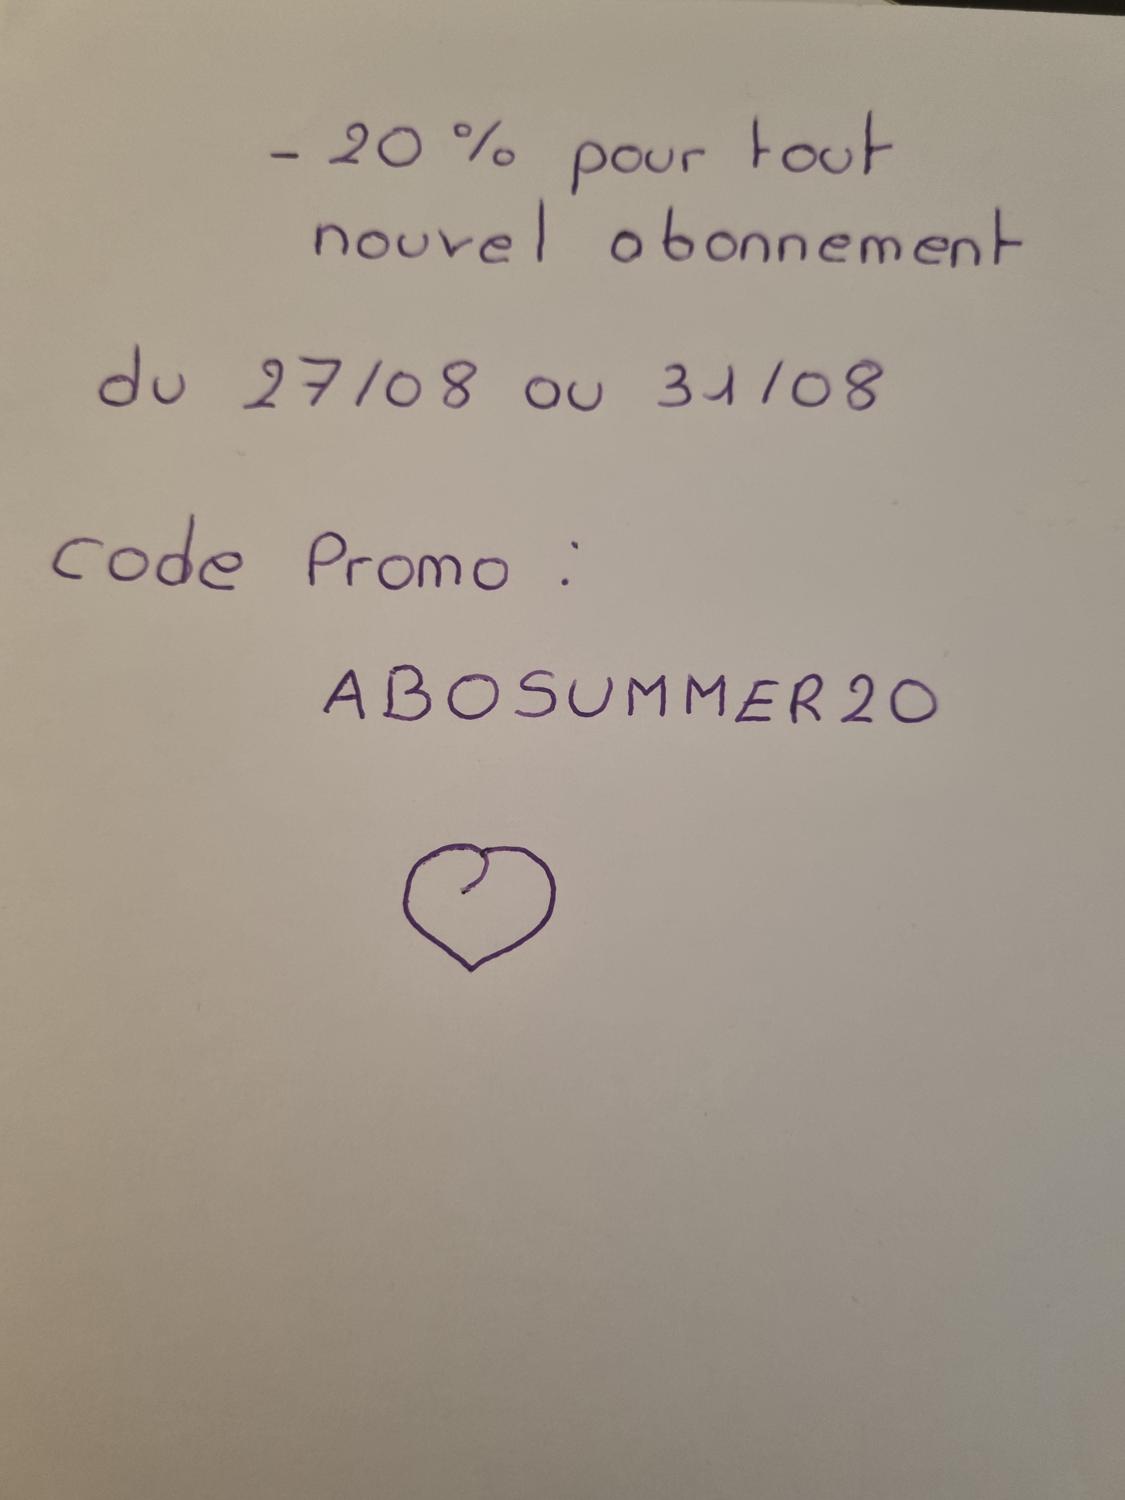 - 20 % pour tout
nouvel abonnement
du 27/08 au 31/08
code Promo :
ABOSUMMER20